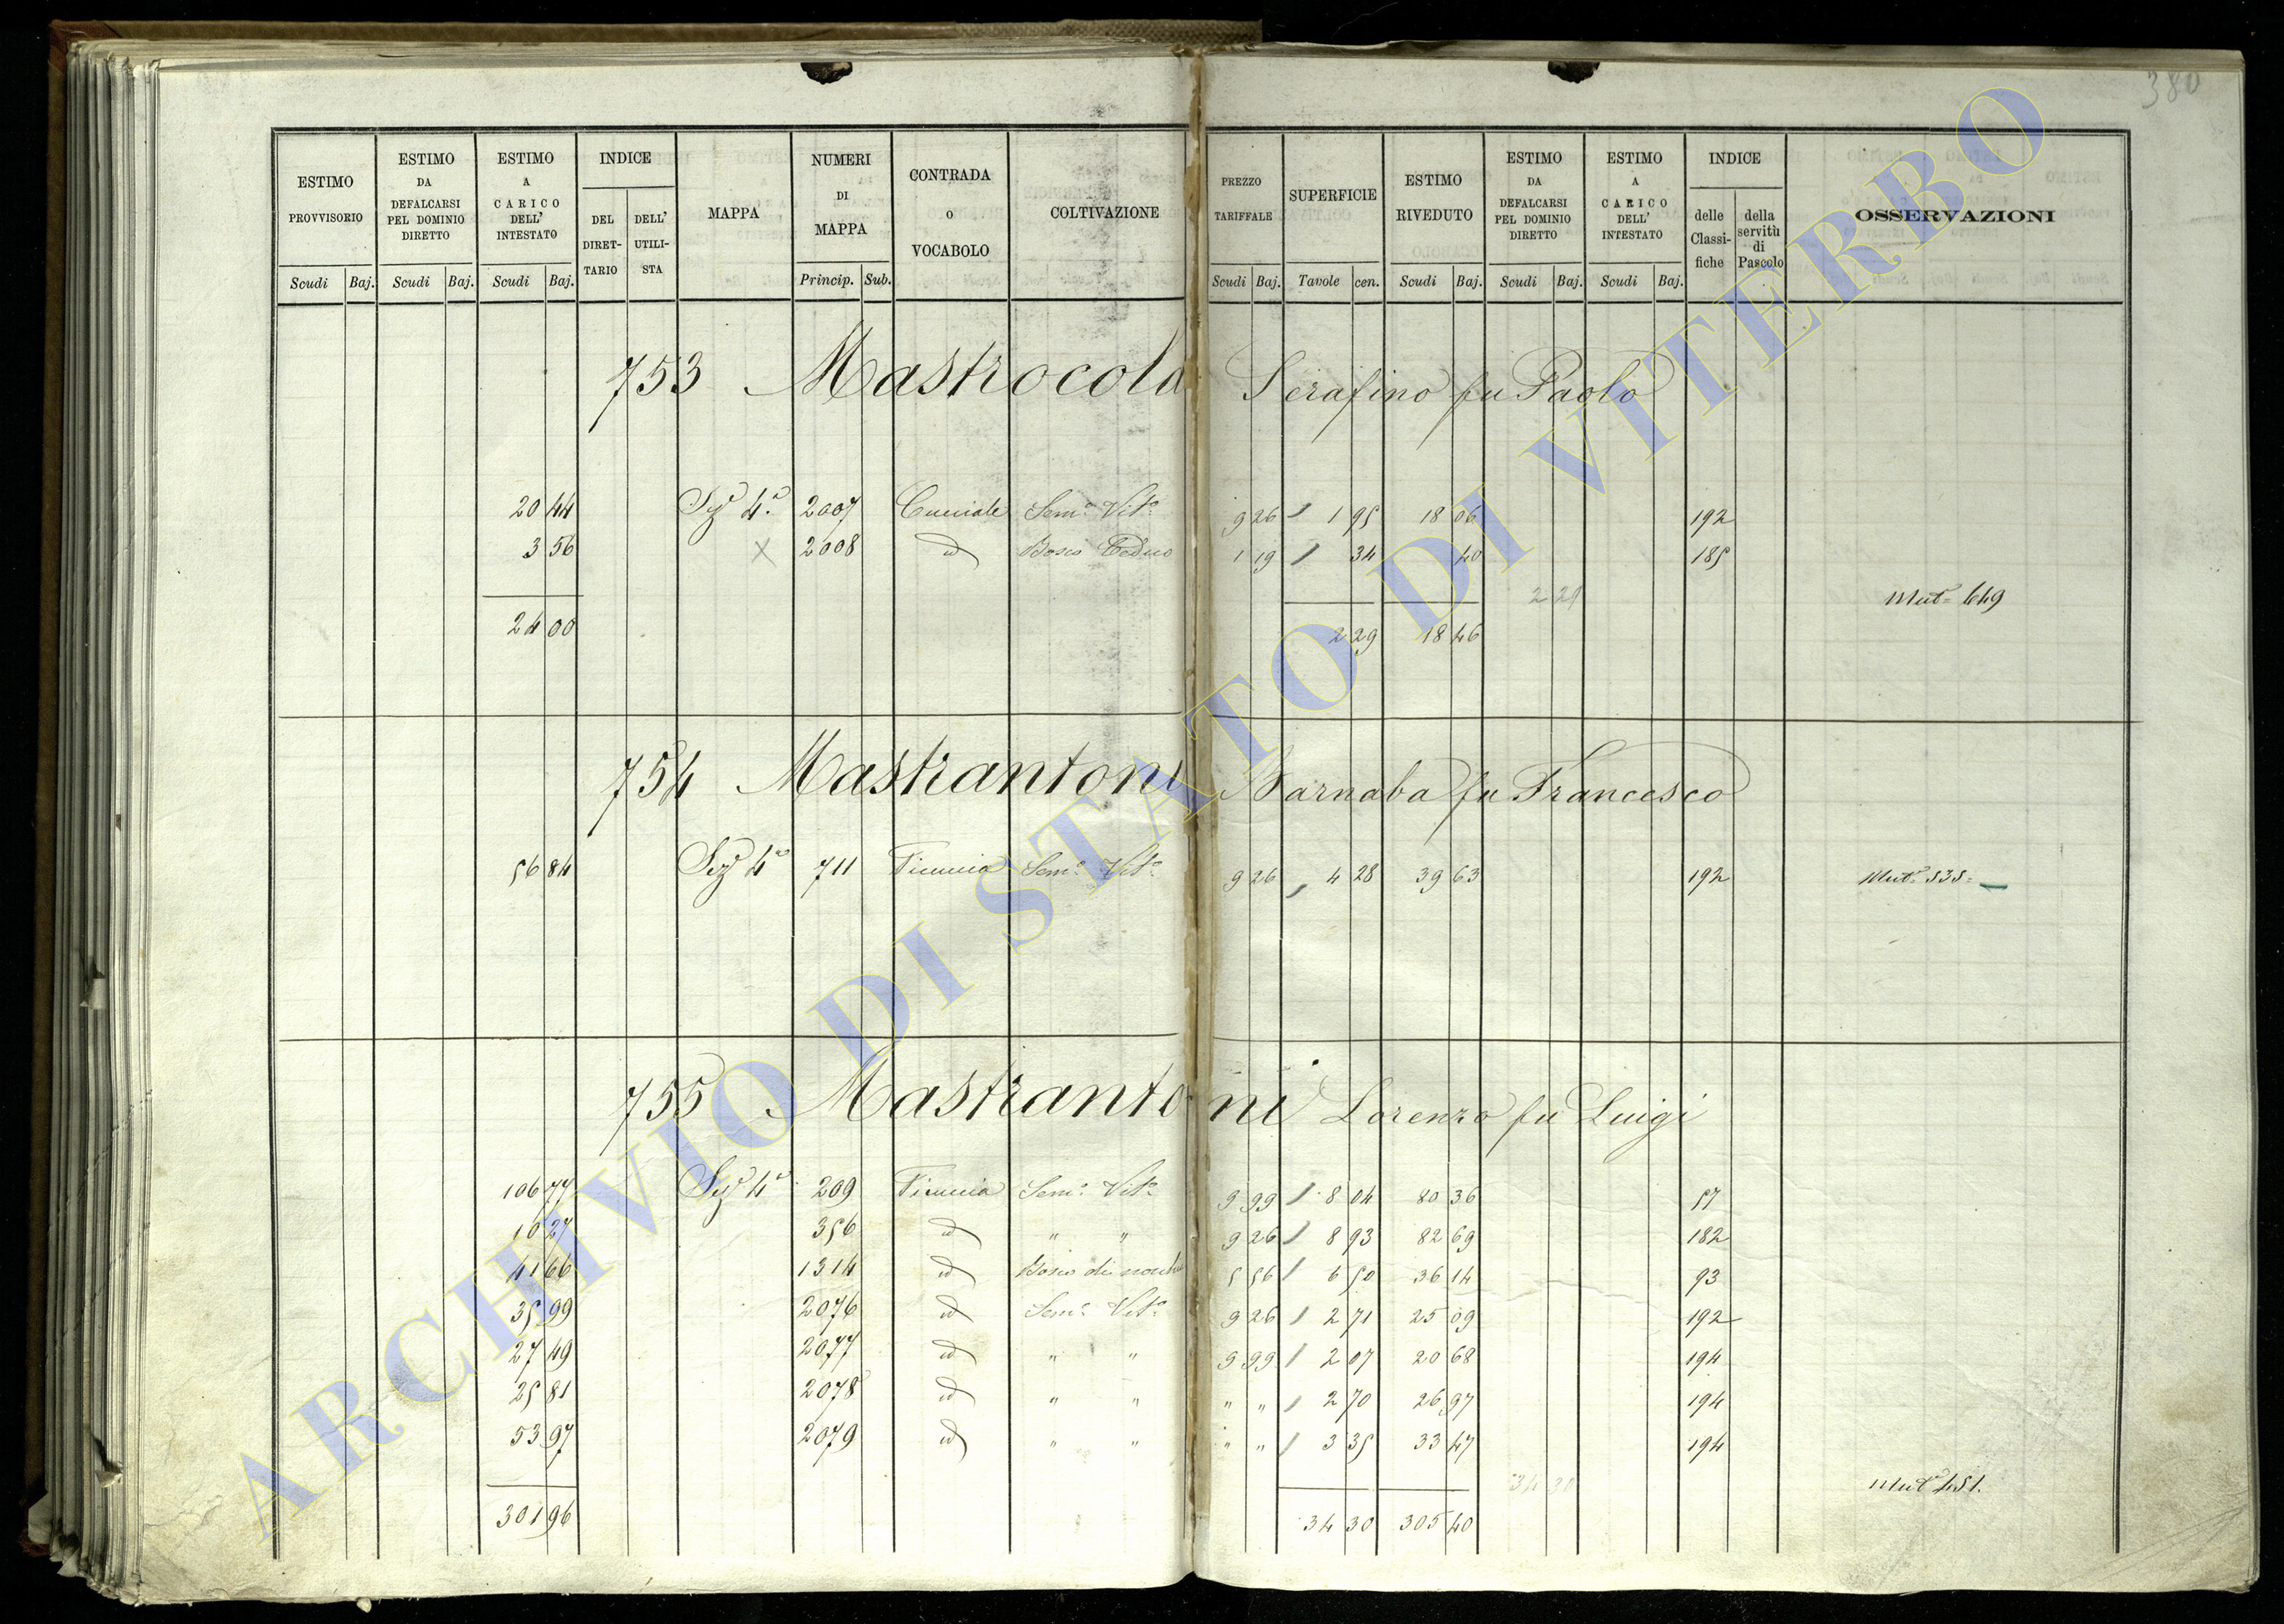 380
ESTIMO PROVVISORIO Scudi Baj.
ESTIMO DA DEFALCARSI PEL DOMINIO DIRETTO Scudi Baj.
ESTIMO A CARICO DELL' INTESTATO Scudi Baj.
INDICE DEL DIRET-TARIO DELL' UTILI-STA
MAPPA
NUMERI DI MAPPA Princip. Sub.
CONTRADA O VOCABOLO
COLTIVAZIONE
PREZZO TARIFFALE Scudi Baj.
SUPERFICIE Tavole cen.
ESTIMO RIVEDUTO Scudi Baj.
ESTIMO DA DEFALCARSI PEL DOMINIO DIRETTO Scudi Baj.
ESTIMO A CARICO DELL' INTESTATO Scudi Baj.
INDICE delle Classi-fiche della servitù di Pascolo
OSSERVAZIONI
753 Mastrocola Serafino fu Paolo
20 44 Sez 4ª 2007 Semo Vito 9 26 1 95 18 06 192
3 56 X 2008 id Bosco Ceduo 1 19 34 40 185
2 29 Mut= 649
24 00 2 29 18 46
754 Mastrantoni Barnaba fu Francesco
56 84 Sez 4ª 711 Semo Vito 9 26 4 28 39 63 192 Mut= 535=
755 Mastrantoni Lorenzo fu Luigi
106 77 Sez 4ª 209 Semo Vito 9 99 8 04 80 36 57
10 27 356 id " " 9 26 8 93 82 69 182
41 66 1314 id Bosco di 5 56 6 50 36 14 93
35 99 2076 id Semo Vito 9 26 2 71 25 09 192
27 49 2077 id " " 9 99 2 07 20 68 194
25 81 2078 id " " " " 2 70 26 97 194
53 97 2079 id " " " " 3 35 33 47 194
34 30 Mut 451.
301 96 34 30 305 40
ARCHIVIO DI STATO DI VITERBO